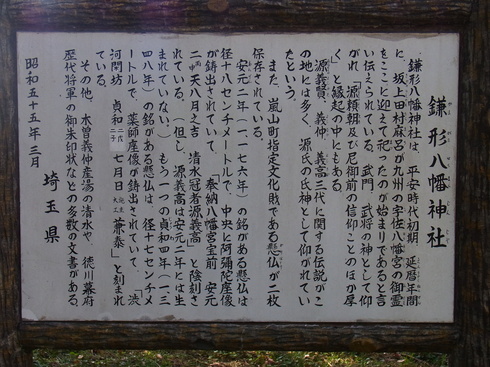 鎌形八幡神社
鎌形八幡神社は、平安時代初期、延暦年間
に、坂上田村麻呂が九州の宇佐八幡宮の御霊
をここに迎えて祀ったのが始まりであると言
い伝えられている。武門、武将の神として仰
がれ、「源頼朝及び尼御前の信仰ことのほか厚
く」と縁起の中にもある。
源義賢、義仲、義高三代に関する伝説がこ
の地には多く、源氏の氏神として仰がれてい
たという。
また、嵐山町指定文化財である懸仏が二枚
保存されている。
安元二年(一一七六年)の銘がある懸仏は
径十八センチメートルで、中央に阿弥陀座像
が鋳出されていて、「奉納八幡宮宝前 安元
二天八月之吉 清水冠者源義高」と陰刻さ
れている。(但し、源義高は安元二年には生
まれていない。)もう一つの貞和四年(一三
四八年)の銘がある懸仏は、径十七センチメ
ートルで、薬師座像が鋳出されていて、「渋
河閇坊 貞和 七月日 大工 兼泰」と刻まれ
ている。
その他、木曽義仲産湯の清水や、徳川幕府
歴代将軍の御朱印状などの多数の文書がある。
昭和五十五年三月
埼玉県